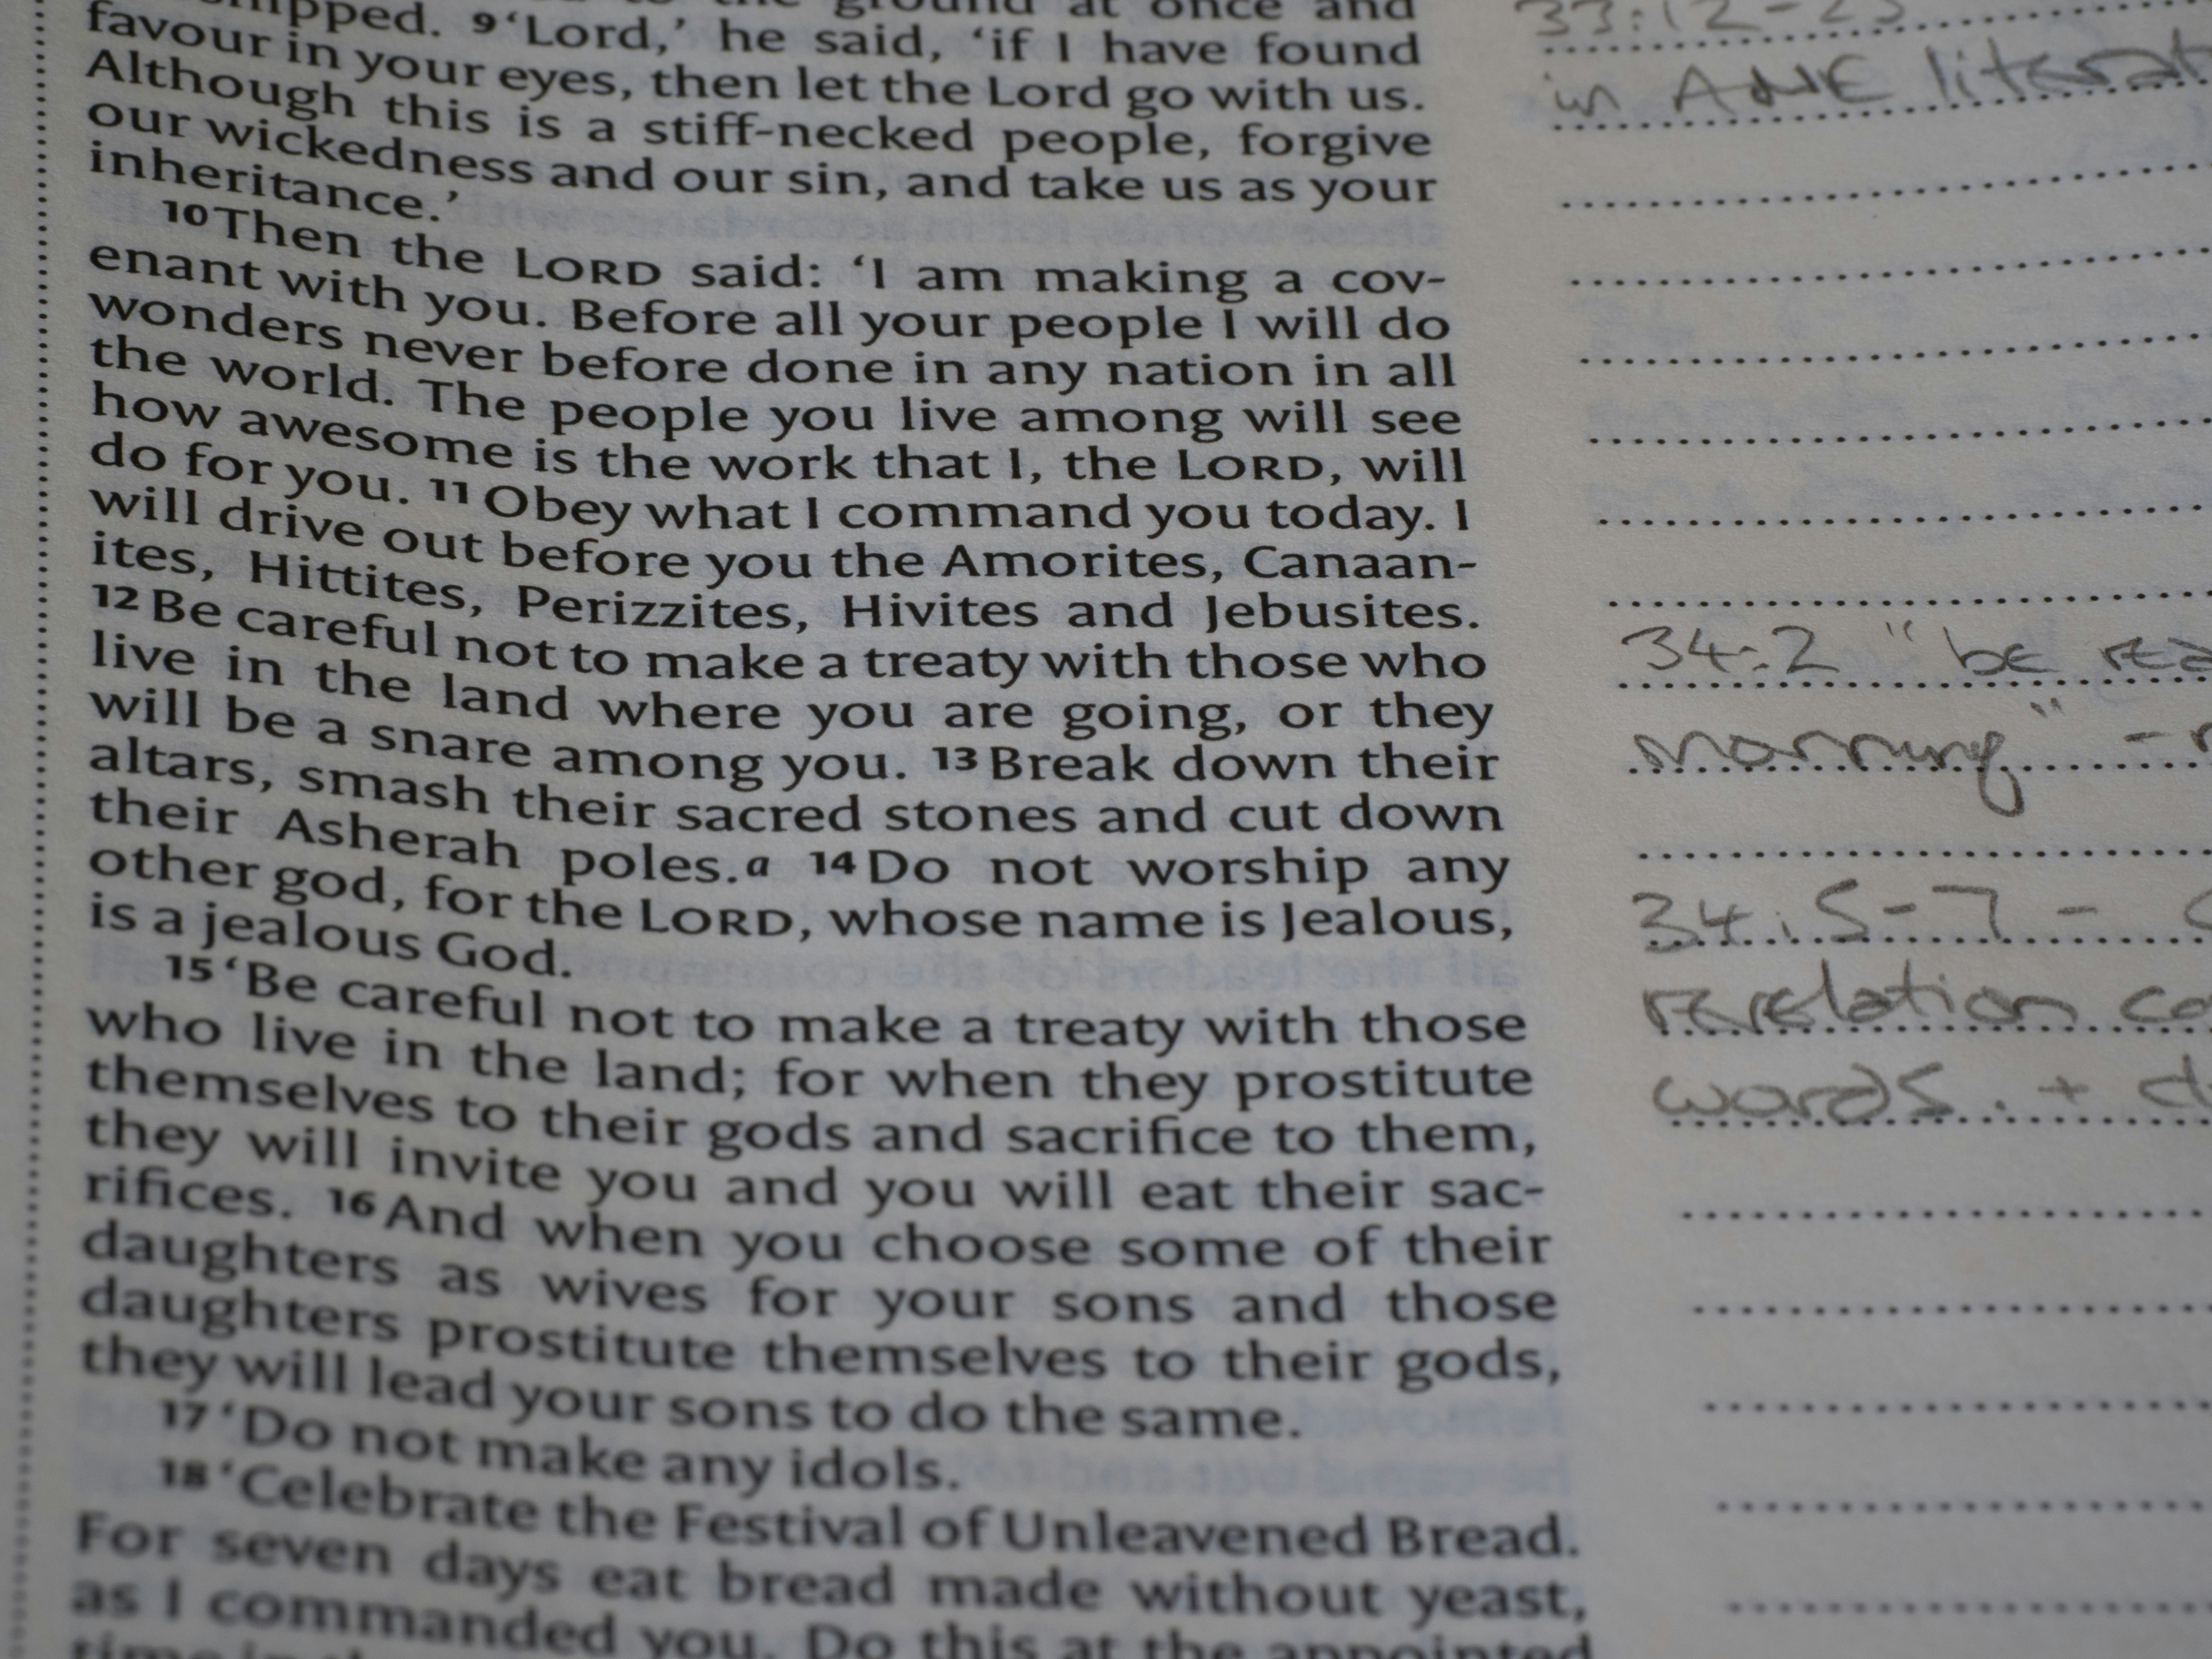 the ground at once and
favour in your eyes, then let the Lord go with us.
9 ‘Lord,’ he said, ‘if I have found
Although this is a stiff-necked people, forgive
our wickedness and our sin, and take us as your
inheritance.’
10 Then the LORD said: ‘I am making a cov-
enant with you. Before all your people I will do
wonders never before done in any nation in all
the world. The people you live among will see
how awesome is the work that I, the LORD, will
do for you. 11 Obey what I command you today. I
will drive out before you the Amorites, Canaan-
ites, Hittites, Perizzites, Hivites and Jebusites.
12 Be careful not to make a treaty with those who
live in the land where you are going, or they
will be a snare among you. 13 Break down their
altars, smash their sacred stones and cut down
their Asherah poles.a 14 Do not worship any
other god, for the LORD, whose name is Jealous,
is a jealous God.
15 ‘Be careful not to make a treaty with those
who live in the land; for when they prostitute
themselves to their gods and sacrifice to them,
they will invite you and you will eat their sac-
rifices. 16 And when you choose some of their
daughters as wives for your sons and those
daughters prostitute themselves to their gods,
they will lead your sons to do the same.
17 ‘Do not make any idols.
18 ‘Celebrate the Festival of Unleavened Bread.
For seven days eat bread made without yeast,
as I commanded you. Do this at the appointed
33:12-23
in ANE literat
34:2 "be rea
morning" -
34:5-7 -
revelation co
words. + d